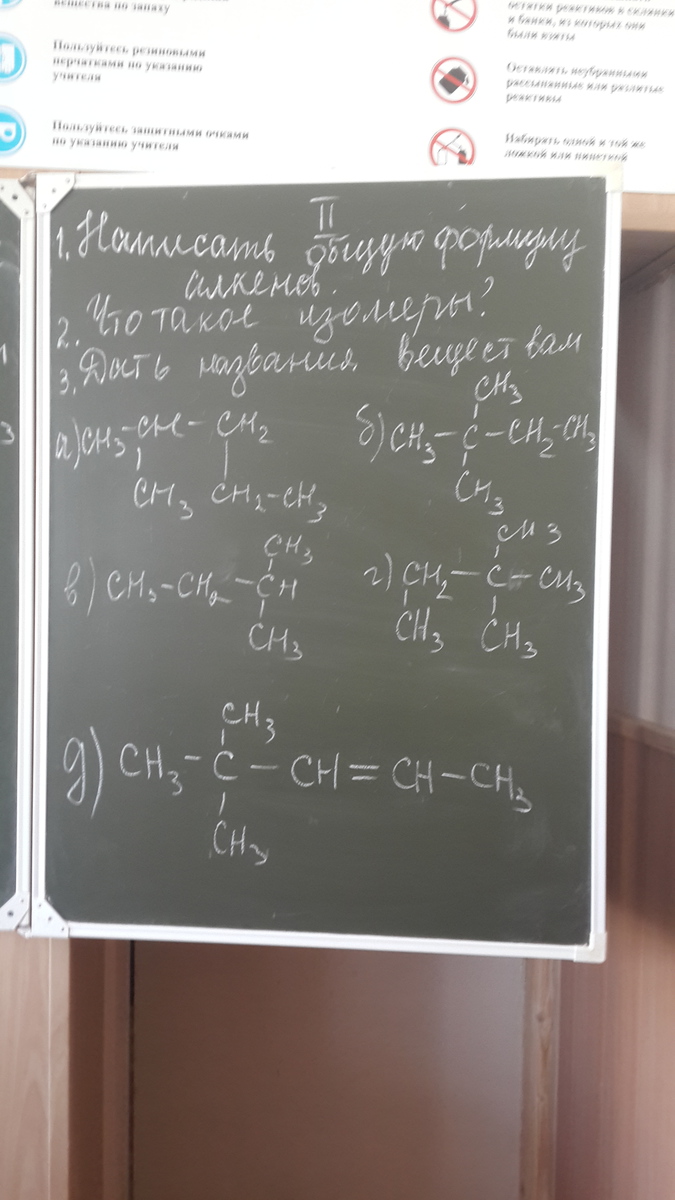 вещества по запаху
Пользуйтесь резиновыми
перчатками по указанию
учителя
Пользуйтесь защитными очками
по указанию учителя
остатки реактивов в склянки
и банки, из которых они
были взяты
Оставлять неубранными
рассыпанные или разлитые
реактивы
Набирать одной и той же
ложкой или пипеткой
II
1. Написать общую формулу
алкенов.
2. Что такое изомеры?
3. Дать названия веществам
а) CH3-CH-CH2
CH3 CH2-CH3
CH3
б) CH3-C-CH2-CH3
CH3
CH3
в) CH3-CH2-CH
CH3
CH3
г) CH2-C-CH3
CH3 CH3
CH3
д) CH3-C-CH=CH-CH3
CH3